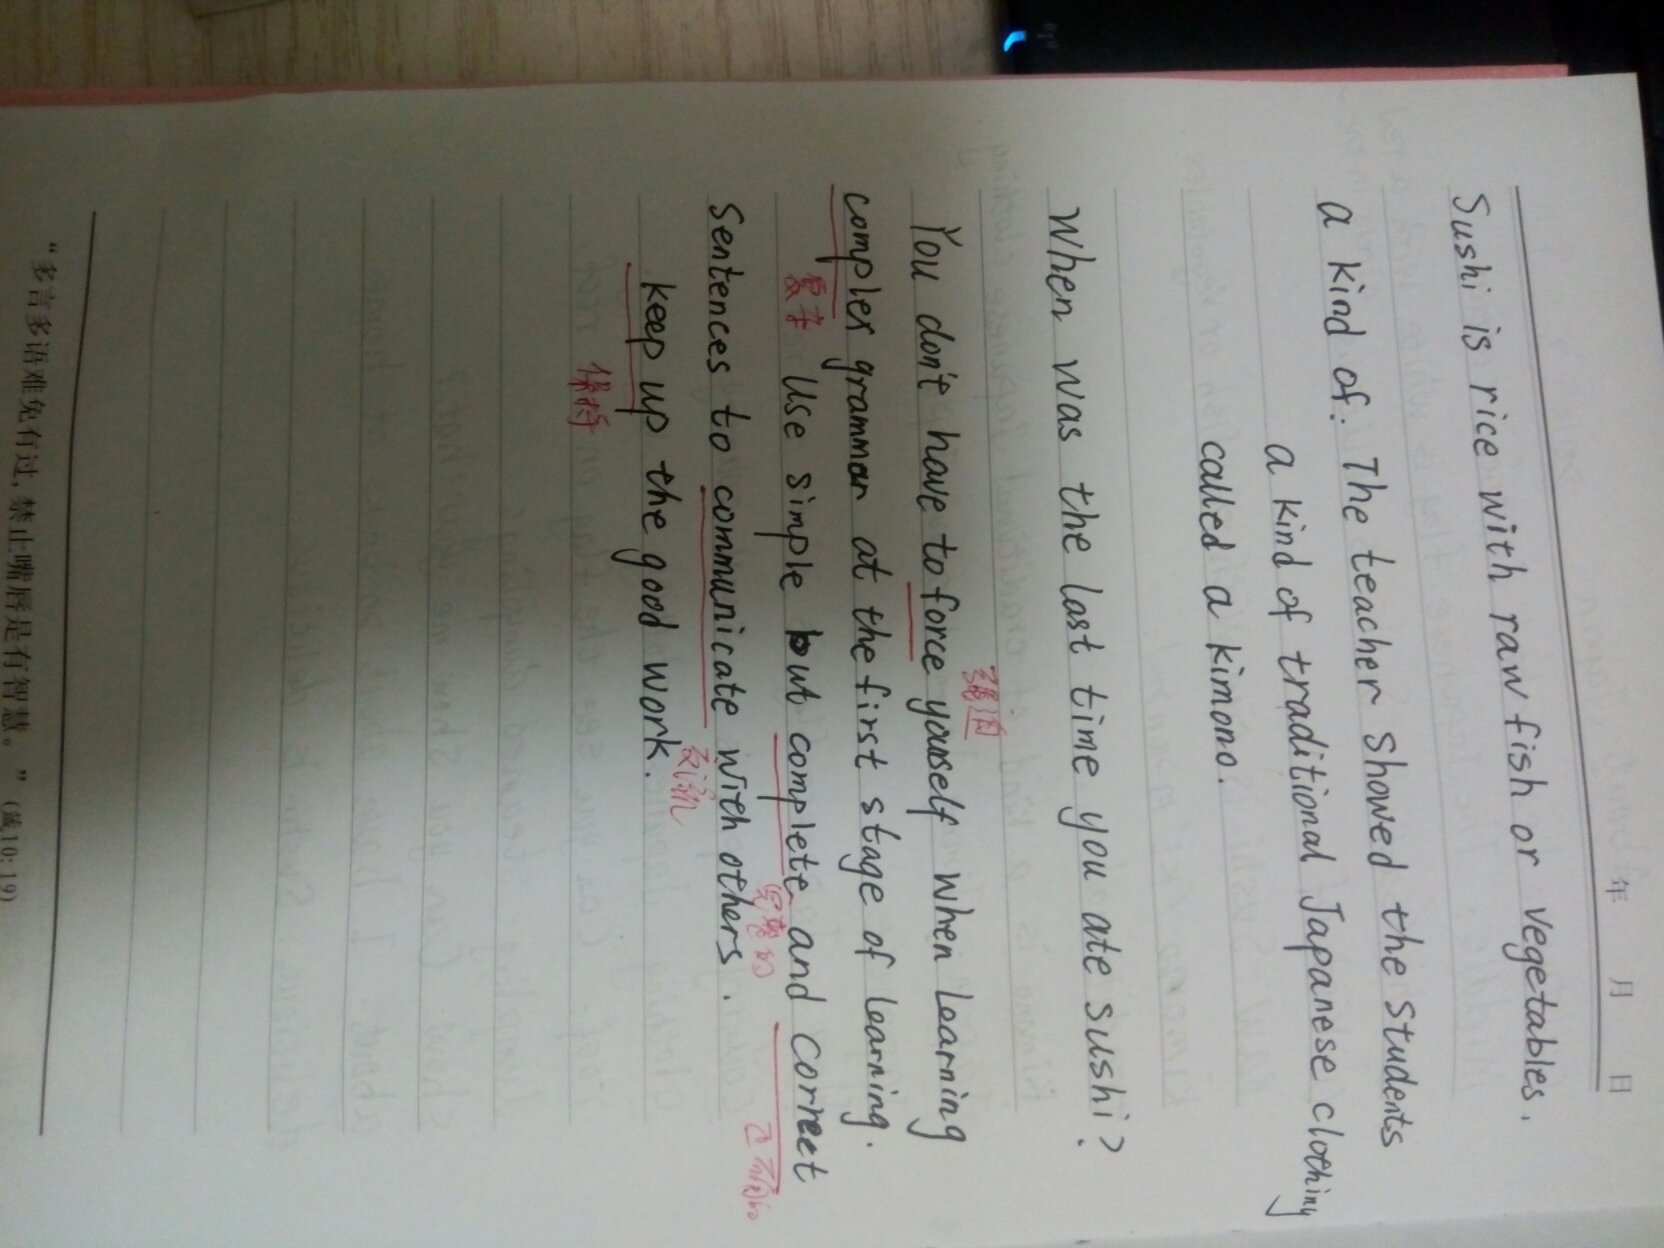 年 月 日
Sushi is rice with raw fish or vegetables.
a kind of: The teacher showed the students
a kind of traditional Japanese clothing
called a kimono.
When was the last time you ate sushi?
强迫
You don't have to force yourself when learning
complex grammar at the first stage of learning.
复杂 Use simple but complete and correct
完整的 正确的
Sentences to communicate with others.
交流
keep up the good work.
保持
“多言多语难免有过，禁止嘴唇是有智慧。”（箴10:19）